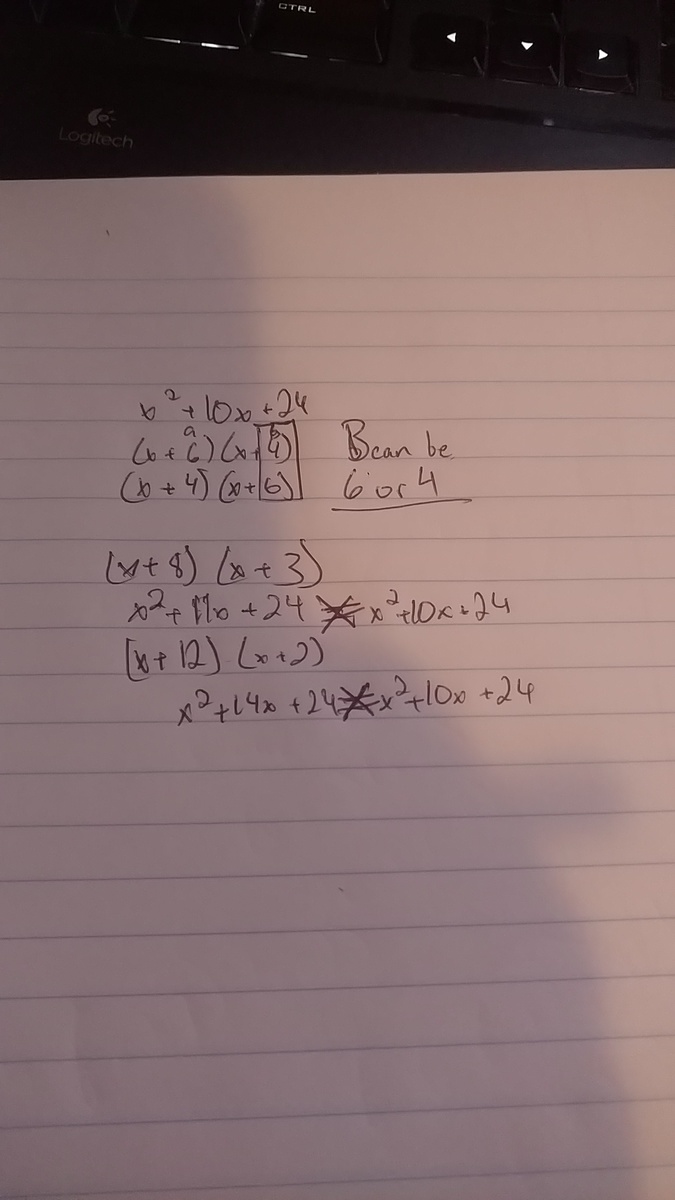 CTRL
Logitech
x² + 10x + 24
a b
(x + 6) (x + 4) B can be
(x + 4) (x + 6) 6 or 4
(x + 8) (x + 3)
x² + 11x + 24 ≠ x² + 10x + 24
(x + 12) (x + 2)
x² + 14x + 24 ≠ x² + 10x + 24